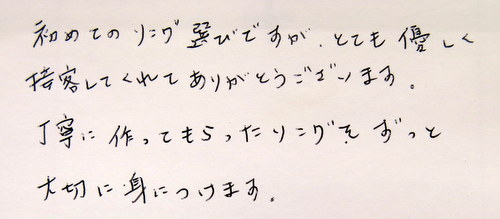 初めてのリング選びですが、とても優しく
接客してくれてありがとうございます。
丁寧に作ってもらったリングをずっと
大切に身につけます。